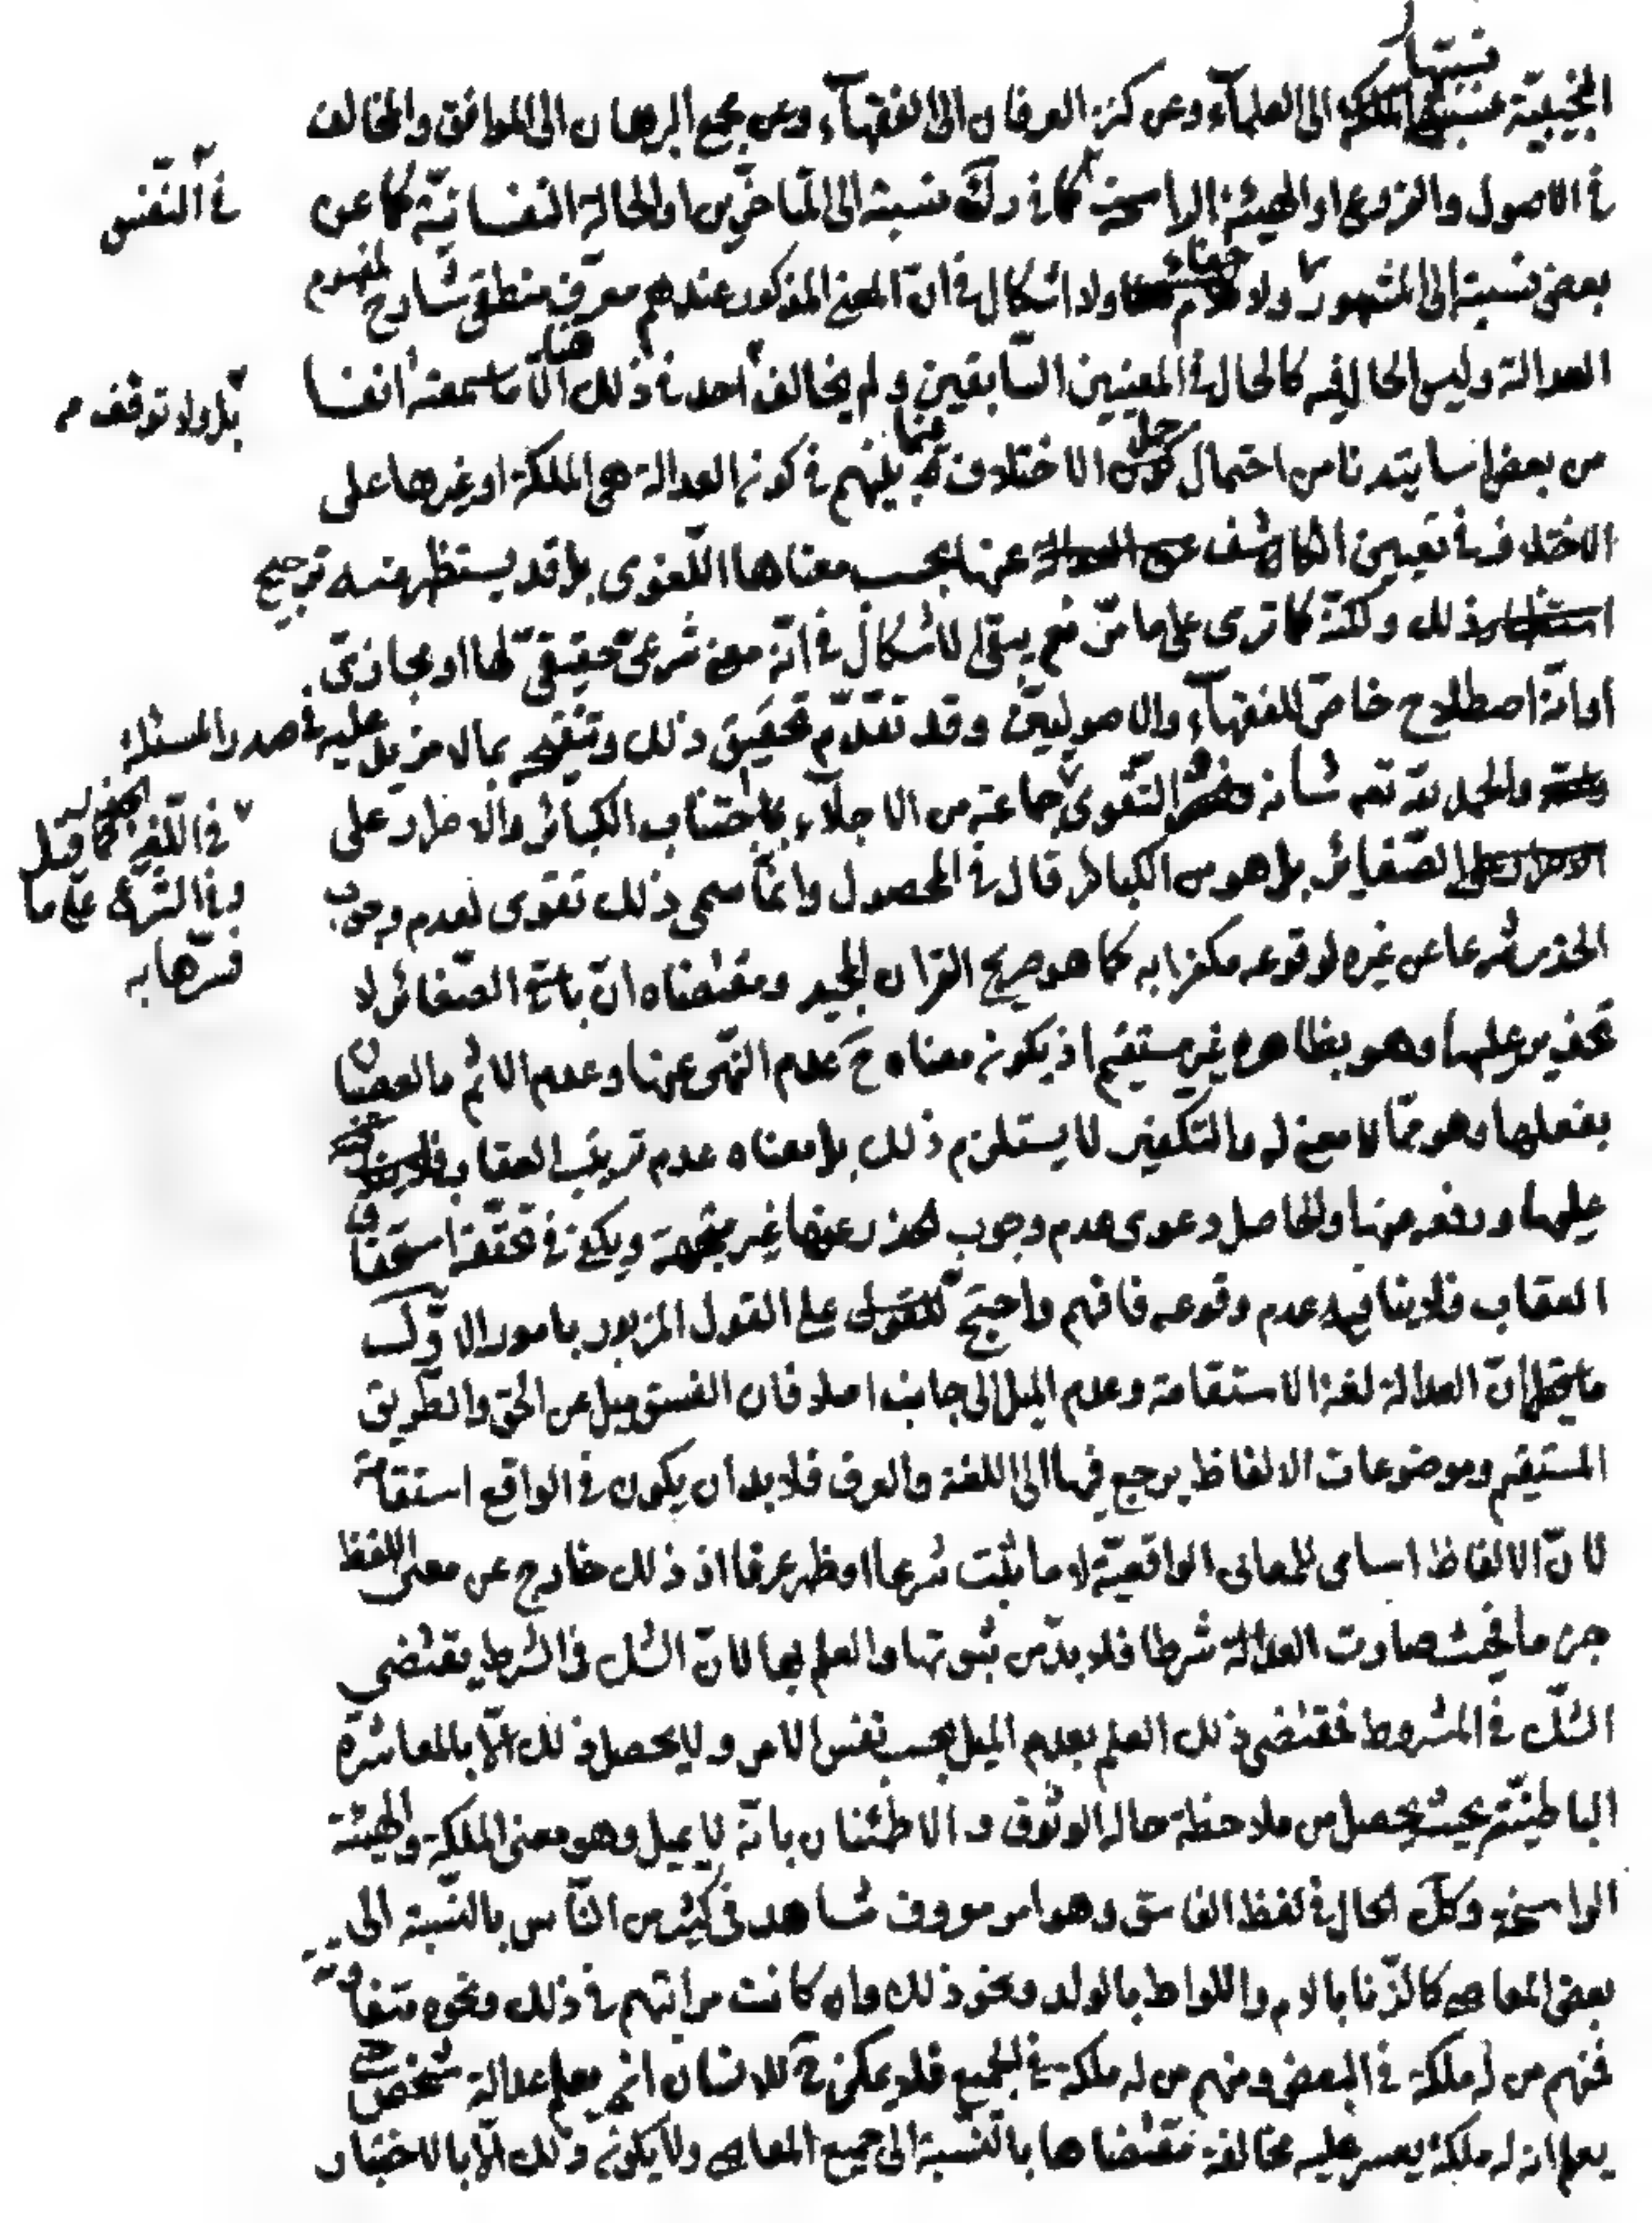 نسبتها
النجيبيّة الى العلمآء وعن كنز العرفان الى الفقهآء وعن مجمع البرهان الى الموافق والمخالف
في الاصول والفروع او الهيئة الراسخة كما في نسبته الى المتاخّرين او الحالة النفسانيّة كما عن
في النّفس
بعض نسبته الى المشهور ولا ولا اشكال في انّ المعنى المذكور عندهم معرّف منطقى شارح لمفهوم
العدالة وليس الحال فيه كالحال في المعنيين السّابقين ولم يخالف احد في ذلك الّا ما سمعته انفا
بل ولا توقف
من بعض اساتيدنا من احتمال الاختلاف بينهم في كون العدالة هى الملكة او غيرها على
الاختلاف في تعيين الكاشف عنها بحسب معناها اللّغوى بل قد يستظهر منه ترجيح
ذلك ولكنّه كما ترى على ما مرّ نعم يبقى الاشكال في انّه معنى شرعىّ حقيقىّ لها او مجازىّ
او انّه اصطلاح خاصّ للفقهآء والاصوليّين وقد تقدّم تحقيق ذلك وتنقيحه بما لا مزيد عليه في صدر المسئلة
والحمد لله تعه شانه التّقوى جماعة من الاجلّاء باجتناب الكبائر والاصرار على
في اللّغة كما قيل
وفي الشرع على ما
فسّرها به
الصّغائر بل هو من الكبائر قال في المحصول وانّما سمى ذلك تقوى لعدم وجوب
الحذر شرعا عن غيره لوقوعه مكفرا به كما هو صريح القران المجيد ومقتضاه انّ باقى الصّغائر لا
تحذير عليها وهو بظاهره غير مستقيم اذ يكون معناه ح عدم النّهى عنها وعدم الاثم والعصيان
بفعلها وهو ممّا لا معنى له والتكفير لا يستلزم ذلك بل معناه عدم ترتيب العقاب
عليها ورفعه عنها والحاصل دعوى عدم وجوب الحذر عنها غير متّجهة ويكفى في تحقّقه استحقاق
العقاب فلا ينافيه عدم وقوعه فافهم واحتجّ على القول المزبور بامور الاوّل
انّ العدالة لغة الاستقامة وعدم الميل الى جانب اصلا فان الفسق ميل عن الحق والطّريق
المستقيم وموضوعات الالفاظ يرجع فيها الى اللغة والعرف فلا بد ان يكون في الواقع استقامة
لانّ الالفاظ اسامى للمعانى الواقعيّة لا ما يثبت شرعا او ظهر عرفا اذ ذلك خارج عن معنى اللفظ
صارت العدالة شرطا فلا بدّ من ثبوتها والعلم بها لانّ الشك في الشرط يقتضي
الشّك في المشروط فمقتضى ذلك العلم بعدم الميل بحسب نفس الامر ولا يحصل ذلك الّا بالمعاشرة
الباطنيّة بحيث يحصل من ملاحظة حاله الوثوق والاطمئنان بانّه لا يميل وهو معنى الملكة والهيئة
الراسخة وكك الحال في لفظ الفاسق وهو امر معروف مشاهد في كثير من النّاس بالنّسبة الى
بعض المعاصى كالزّنا بالام واللواط بالولد ونحو ذلك وان كانت مراتبهم في ذلك ونحوه متفاوتة
فمنهم من له ملكة في البعض ومنهم من له ملكة في الجميع فلا يمكن للانسان ان يعلم عدالة شخص حتى
يعلم ان له ملكة يعسر عليه مخالفة مقتضاها بالنّسبة الى جميع المعاصى ولا يكون ذلك الّا بالاختبار